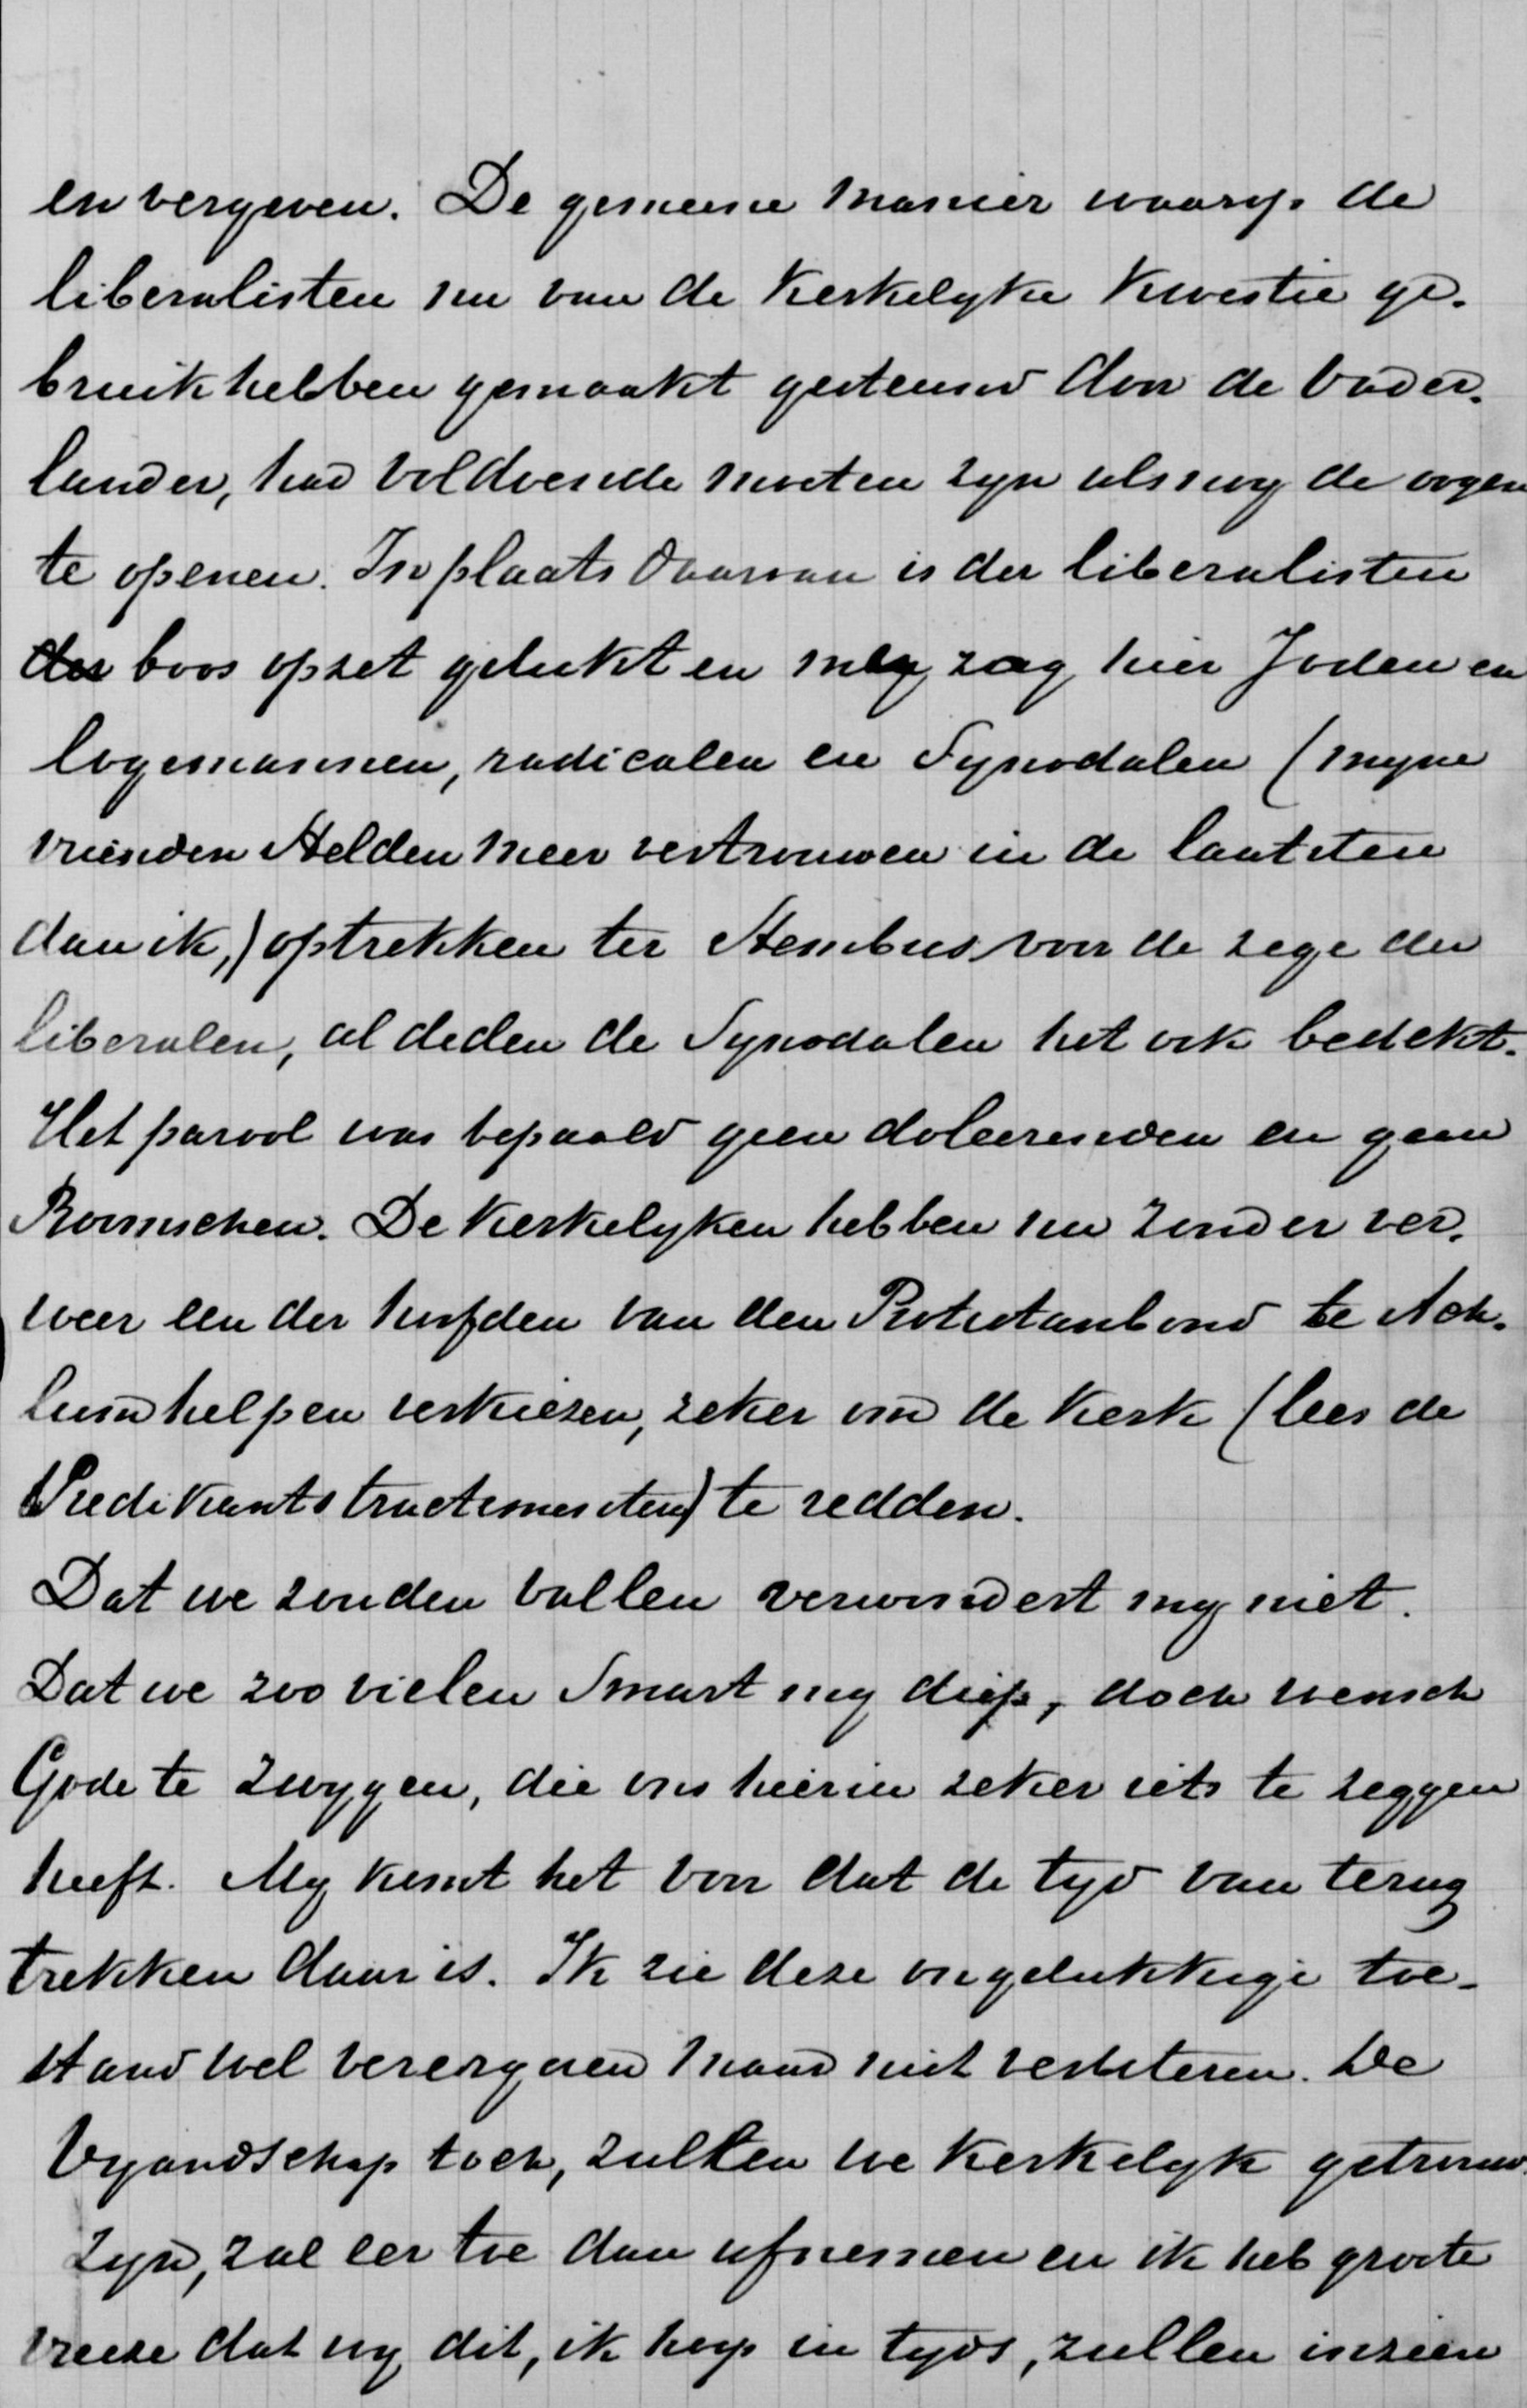 en vergeven. De gemeene manier waarop de
liberalisten nu van de Kerkelyke Kwestie ge-
bruik hebben gemaakt gesteund door de Vader-
lander, had voldoende moeten zyn als nog de oogen
te openen. In plaats daarvan is der liberalisten
boos opzet gelukt en men zag hier Joden en
logemannen, radicalen en Synodalen (myne
vrienden stelden meer vertrouwen in de laatsten
dan ik,) optrekken ter stembus voor de zege der
liberalen, al deden de Synodalen het ook bedekt.
Het parool was bepaald geen doleerenden en geen
Roomschen. De Kerkelyken hebben nu zonder ver-
weer een der hoofden van den Protestantbond te Ach-
lum helpen verkiezen, zeker om de Kerk (lees de
Predikantstractementen) te redden.
Dat we zouden vallen verwondert my niet.
Dat we zoo vielen Smart my diep, doch wensch
Gode te zwygen, die ons hierin zeker iets te zeggen
heeft. My komt het voor dat de tyd van terug
trekken daar is. Ik zie deze ongelukkige toe-
stand wel verergeren maar niet verbeteren. De
Vyandschap toch, zullen we Kerkelyk getrouw
zyn, zal eer toe dan afnemen en ik heb groote
vreeze dat wy dit, ik hoop in tyds, zullen inzien